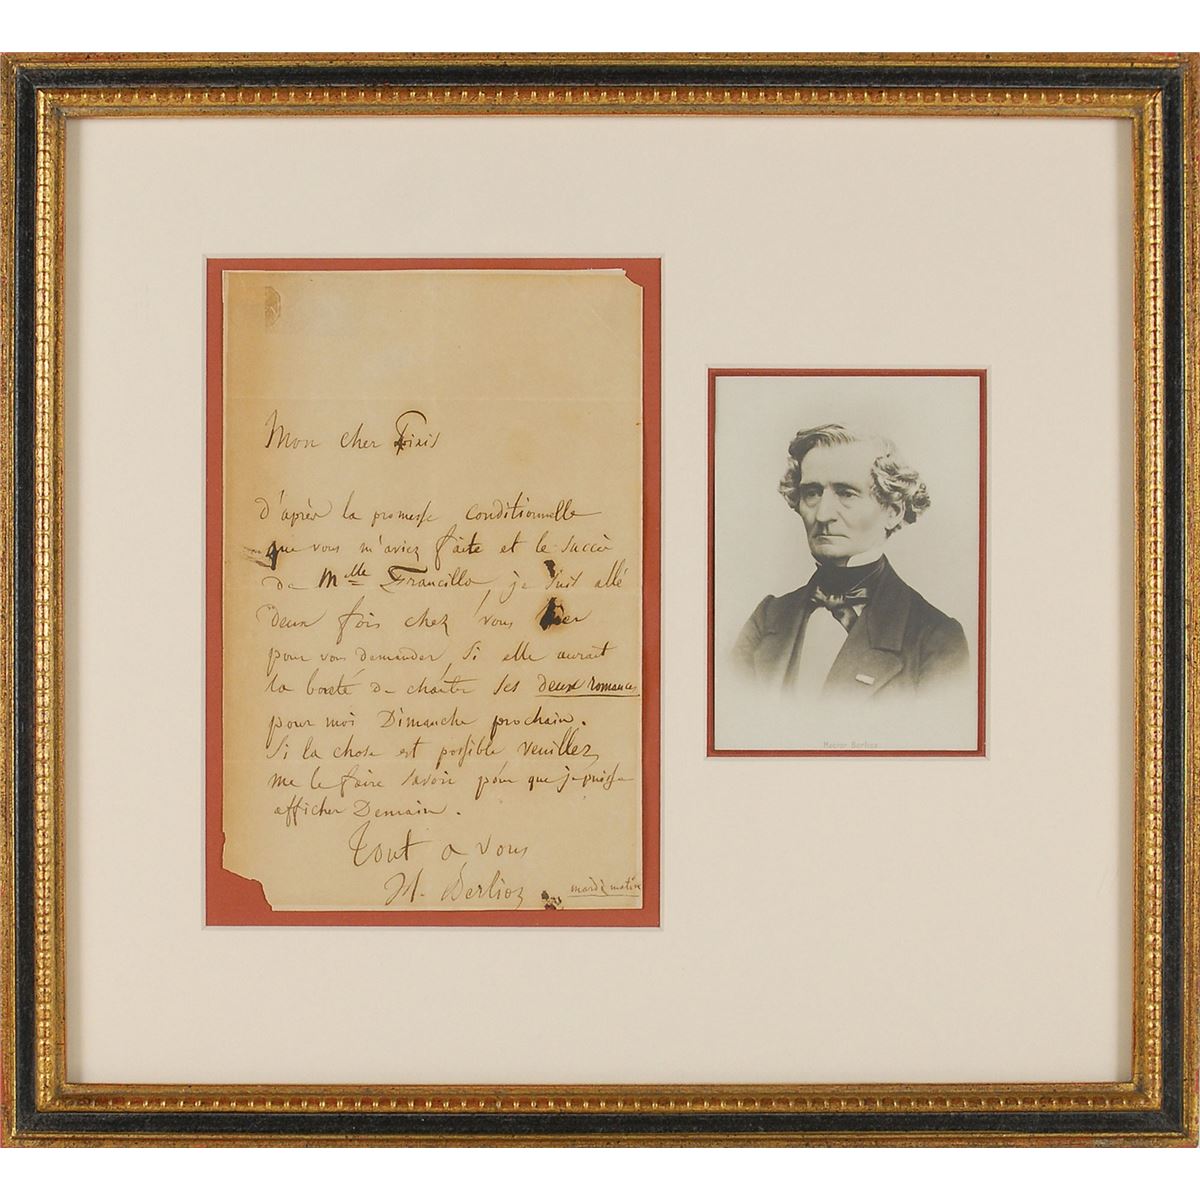 Mon cher
d'après la promesse conditionnelle
que vous m'aviez faite et le succès
de Mlle Francilla, je suis allé
deux fois chez vous hier
pour vous demander si elle aurait
la bonté de chanter ses deux romances
pour moi Dimanche prochain.
Si la chose est possible veuillez
me le faire savoir pour que je puisse
afficher Demain.
Tout a vous
H. Berlioz
mardi matin
Hector Berlioz